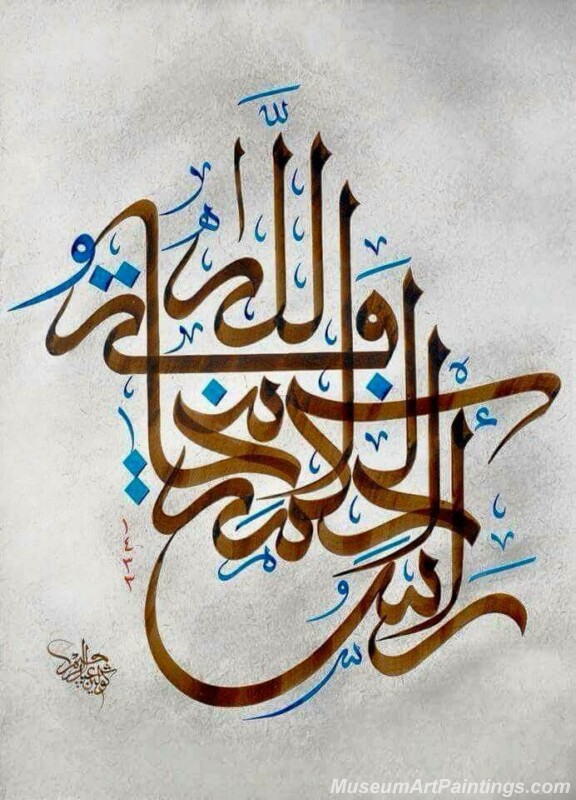 رأس الحكمة مخافة الله
MuseumArtPaintings.com